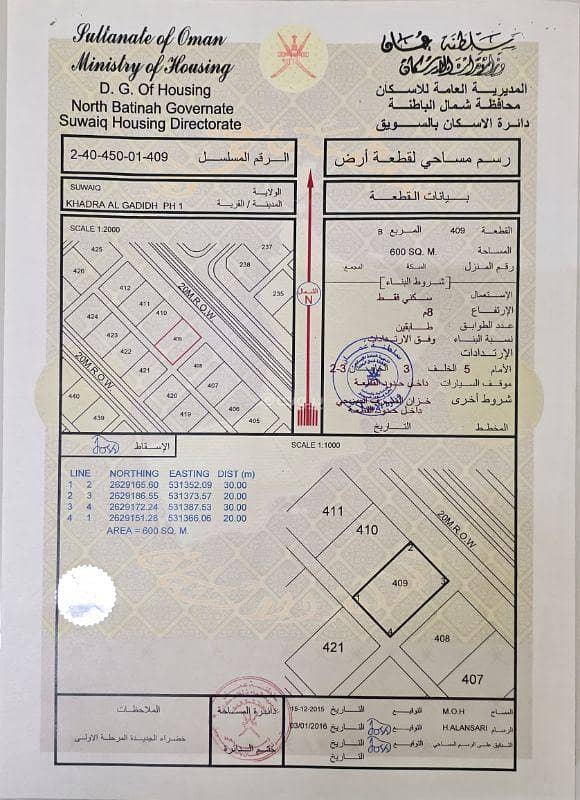 Sultanate of Oman
Ministry of Housing
D. G. Of Housing
North Batinah Governate
Suwaiq Housing Directorate
سلطنة عمان
وزارة الإسكان
المديرية العامة للاسكان
محافظة شمال الباطنة
دائرة الاسكان بالسويق
2-40-450-01-409 الرقم المسلسل
رسم مساحي لقطعة أرض
SUWAIQ الولاية
KHADRA AL GADIDH PH 1 المدينة / القرية
بيانات القطعة
SCALE 1:2000
425
426
412
411
410
424
423
422
421
409
408
407
406
405
420
419
440
439
237
238
235
20M.R.O.W
20M.R.O.W
الشمال
N
القطعة 409 المربع B
المساحة 600 SQ. M.
رقم المنزل السكة المجمع
[شروط البناء]
الاستعمال سكني فقط
الإرتفاع 8م
عدد الطوابق طابقين
نسبة البناء وفق الارتدادات
الإرتدادات
الأمام 5 الخلف 3 2-3
موقف السيارات داخل حدود القطعة
شروط أخرى خزان
داخل حدود القطعة
المخطط التاريخ
الإسقاط
SCALE 1:1000
LINE NORTHING EASTING DIST (m)
1 2 2629165.60 531352.09 30.00
2 3 2629186.55 531373.57 20.00
3 4 2629172.24 531387.53 30.00
4 1 2629151.28 531366.06 20.00
AREA = 600 SQ. M.
411
410
20M.R.O.W
2
409
3
1
4
421
408
407
الملاحظات
خضراء الجديدة المرحلة الاولى
دائرة المساحة
ختم الدائرة
المساح M.O.H التوقيع التاريخ 15-12-2015
الرسام H.ALANSARI التوقيع التاريخ 03/01/2016
التدقيق على الرسم المساحي التوقيع التاريخ
التاريخ